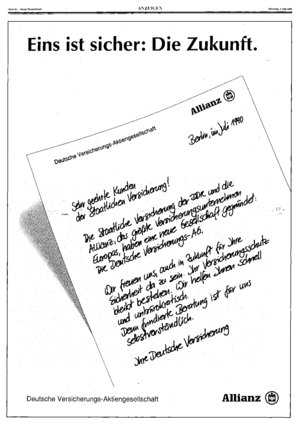 ANZEIGEN
Eins ist sicher: Die Zukunft.
Allianz
Deutsche Versicherungs-Aktiengesellschaft
Berlin, im Juli 1990
Sehr geehrte Kunden
der Staatlichen Versicherung!
Die Staatliche Versicherung der DDR und die
Allianz, das größte Versicherungsunternehmen
Europas, haben eine neue Gesellschaft gegründet:
Die Deutsche Versicherungs-AG.
Wir freuen uns, auch in Zukunft für Ihre
Sicherheit da zu sein. Ihr Versicherungsschutz
bleibt bestehen. Wir helfen Ihnen schnell
und unbürokratisch.
Denn fundierte Beratung ist für uns
selbstverständlich.
Ihre Deutsche Versicherung
Deutsche Versicherungs-Aktiengesellschaft
Allianz